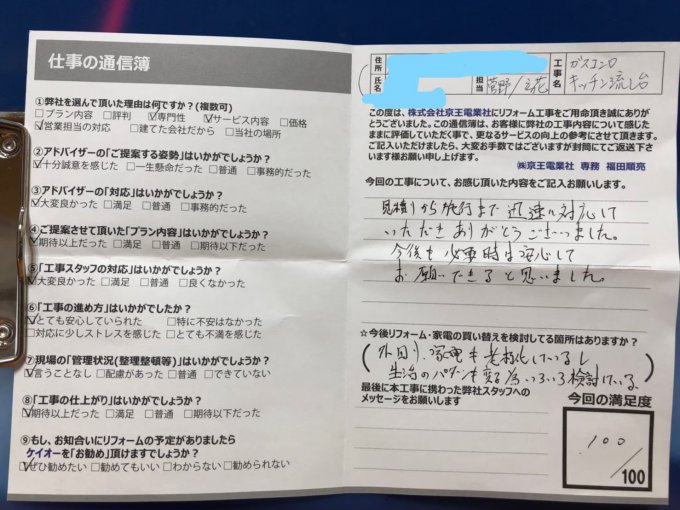 仕事の通信簿
①弊社を選んで頂いた理由は何ですか?(複数可)
□プラン内容 □評判 ☑専門性 ☑サービス内容 □価格
☑営業担当の対応 □建てた会社だから □当社の場所
②アドバイザーの「ご提案する姿勢」はいかがでしょうか?
☑十分誠意を感じた □一生懸命だった □普通 □事務的だった
③アドバイザーの「対応」はいかがでしょうか?
☑大変良かった □満足 □普通 □事務的だった
④ご提案させて頂いた「プラン内容」はいかがでしょうか?
☑期待以上だった □満足 □普通 □期待以下だった
⑤「工事スタッフの対応」はいかがでしょうか?
☑大変良かった □満足 □普通 □良くなかった
⑥「工事の進め方」はいかがでしたか?
☑とても安心していられた □特に不安はなかった
□対応に少しストレスを感じた □とても不満を感じた
⑦現場の「管理状況(整理整頓等)」はいかがでしょうか?
☑言うことなし □配慮があった □普通 □できていない
⑧「工事の仕上がり」はいかがでしょうか?
☑期待以上だった □満足 □普通 □期待以下だった
⑨もし、お知合いにリフォームの予定がありましたら
ケイオーを「お勧め」頂けますでしょうか?
☑ぜひ勧めたい □勧めてもいい □わからない □勧められない
住所
氏名
担当
菅野/立花
工事名
ガスコンロ
キッチン流し台
この度は、株式会社京王電業社にリフォーム工事をご用命頂き誠にありが
とうございました。この通信簿は、お客様に弊社の工事内容について感じた
ままに評価していただく事で、更なるサービスの向上の参考にさせて頂きます。
ご記入いただけましたら、大変お手数ではございますが封筒にてご返送下さ
います様お願い申し上げます。
㈱京王電業社 専務 福田順亮
今回の工事について、お感じ頂いた内容をご記入お願します。
見積りから施行まで迅速に対応して
いただきありがとうございました。
今後も必要時は安心して
お願いできると思いました。
☆今後リフォーム・家電の買い替えを検討してる箇所はありますか?
(外回り、家電も老朽化しているし
生活のパターンも変る為いろいろ検討している)
最後に本工事に携わった弊社スタッフへの
メッセージをお願いします
今回の満足度
100
/100